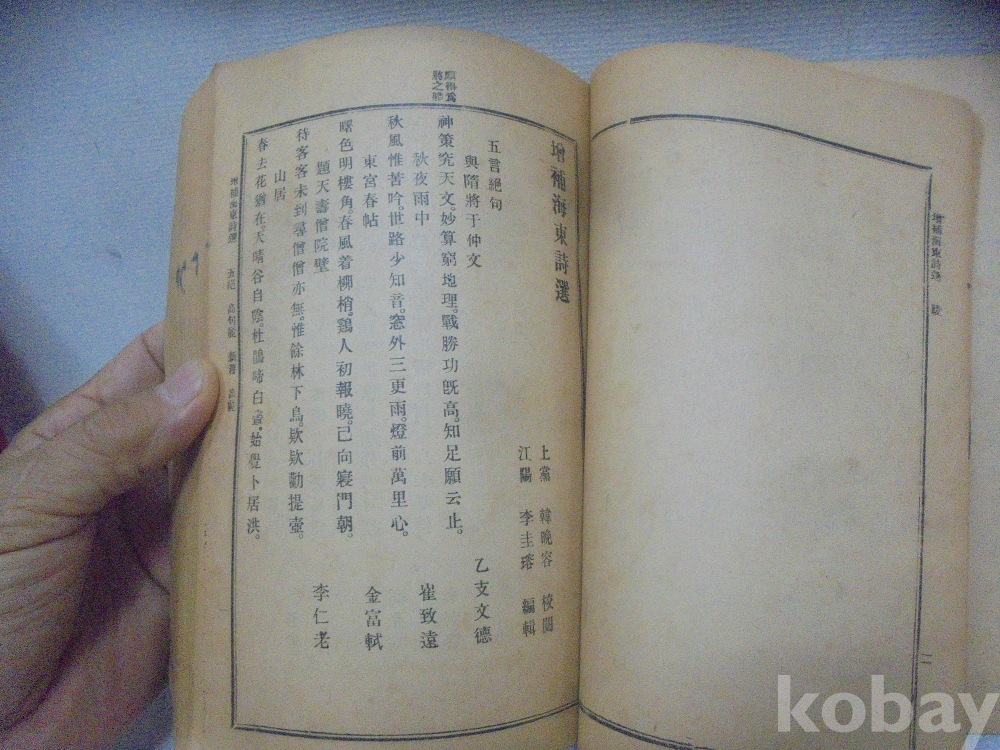 增補海東詩選 跋
二
增補海東詩選
上黨 韓晩容 校閱
江陽 李圭瑢 編輯
五言絕句
與隋將于仲文 乙支文德
神策究天文。妙算窮地理。戰勝功旣高。知足願云止。
秋夜雨中 崔致遠
秋風惟苦吟。世路少知音。窓外三更雨。燈前萬里心。
東宮春帖 金富軾
曙色明樓角。春風着柳梢。鷄人初報曉。已向寢門朝。
題天壽僧院壁 李仁老
待客客未到尋僧僧亦無。惟餘林下鳥。欵欵勸提壺。
山居
春去花猶在。天晴谷自陰。杜鵑啼白晝。始覺卜居深。
增補海東詩選 五絕 高句麗 新羅 高麗
kobay